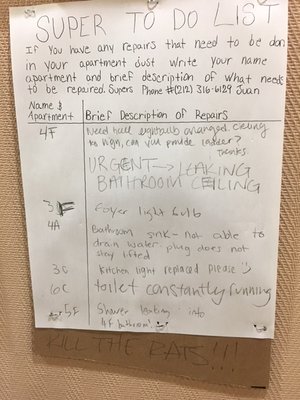 SUPER TO DO LIST
If you have any repairs that need to be don
in your apartment just write your name
apartment and brief description of what needs
to be repaired. Supers Phone # (212) 316-6129 Juan
Name &
Apartment
Brief Description of Repairs
4F
Need hall lightbulb changed. Ceiling
too high, can you provide ladder?
Thanks.
URGENT → LEAKING
BATHROOM CEILING
3F
Foyer light bulb
4A
Bathroom sink - not able to
drain water. plug does not
stay lifted
3C
Kitchen light replaced please
6C
toilet constantly running
5F
Shower leaking into
4F bathroom!
KILL THE RATS!!!